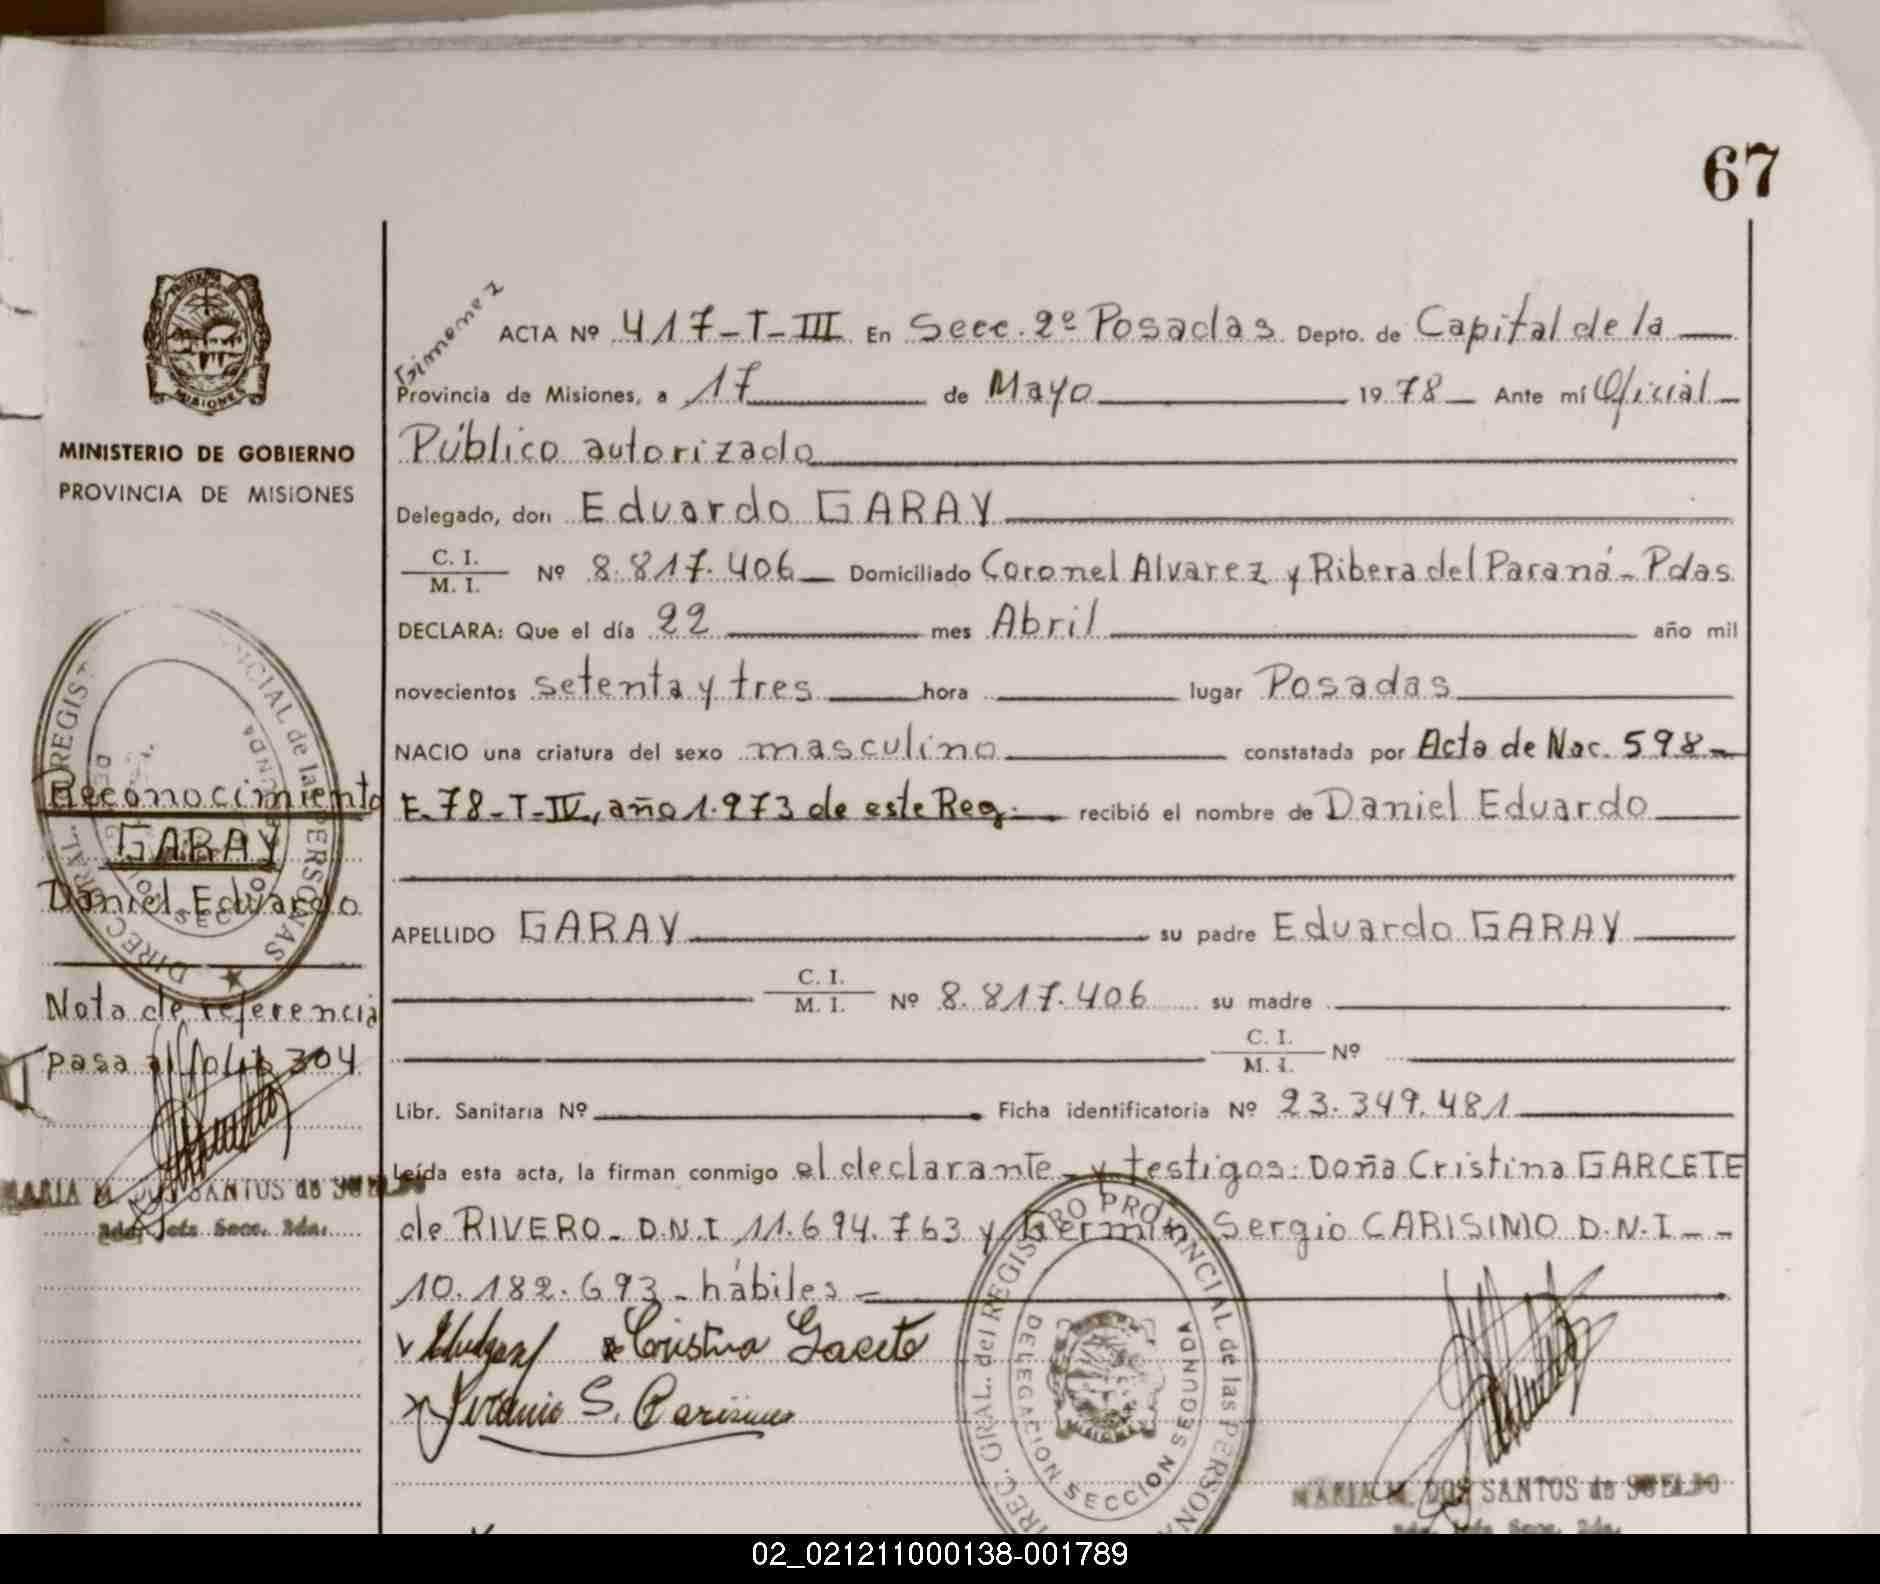 67
Gimenez
ACTA Nº 417-T-III En Secc. 2º Posadas Depto. de Capital de la
Provincia de Misiones, a 17 de Mayo 1978 Ante mí Oficial
Público autorizado
Delegado, don Eduardo GARAY
C. I.
M. I. Nº 8.817.406 Domiciliado Coronel Alvarez y Ribera del Paraná - Pdas.
DECLARA: Que el día 22 mes Abril año mil
novecientos setenta y tres hora lugar Posadas
NACIO una criatura del sexo masculino constatada por Acta de Nac. 598-
F. 78-T-IV, año 1.973 de este Reg. recibió el nombre de Daniel Eduardo
APELLIDO GARAY su padre Eduardo GARAY
C. I.
M. I. Nº 8.817.406 su madre
C. I.
M. I. Nº
Libr. Sanitaria Nº Ficha identificatoria Nº 23.349.481
Leída esta acta, la firman conmigo el declarante - y testigos: Doña Cristina GARCETE
de RIVERO - D.N.I 11.694.763 y Germin Sergio CARISIMO D.N.I - -
10.182.693 - hábiles -
Cristina Gacete
S. Carisimo
DIREC. GRAL. del REGISTRO PROVINCIAL de las PERSONAS
DELEGACION SECCION SEGUNDA
MARIA M. DOS SANTOS de SUELDO
Secc. 2da.
MISIONES
MINISTERIO DE GOBIERNO
PROVINCIA DE MISIONES
DIREC. GRAL. REGIST CIAL de las PERSONAS
Reconocimiento
GARAY
Daniel Eduardo
Nota de referencia
pasa al folio 304
MARIA M. DOS SANTOS de SUELDO
Jefa Secc. 2da.
02_021211000138-001789